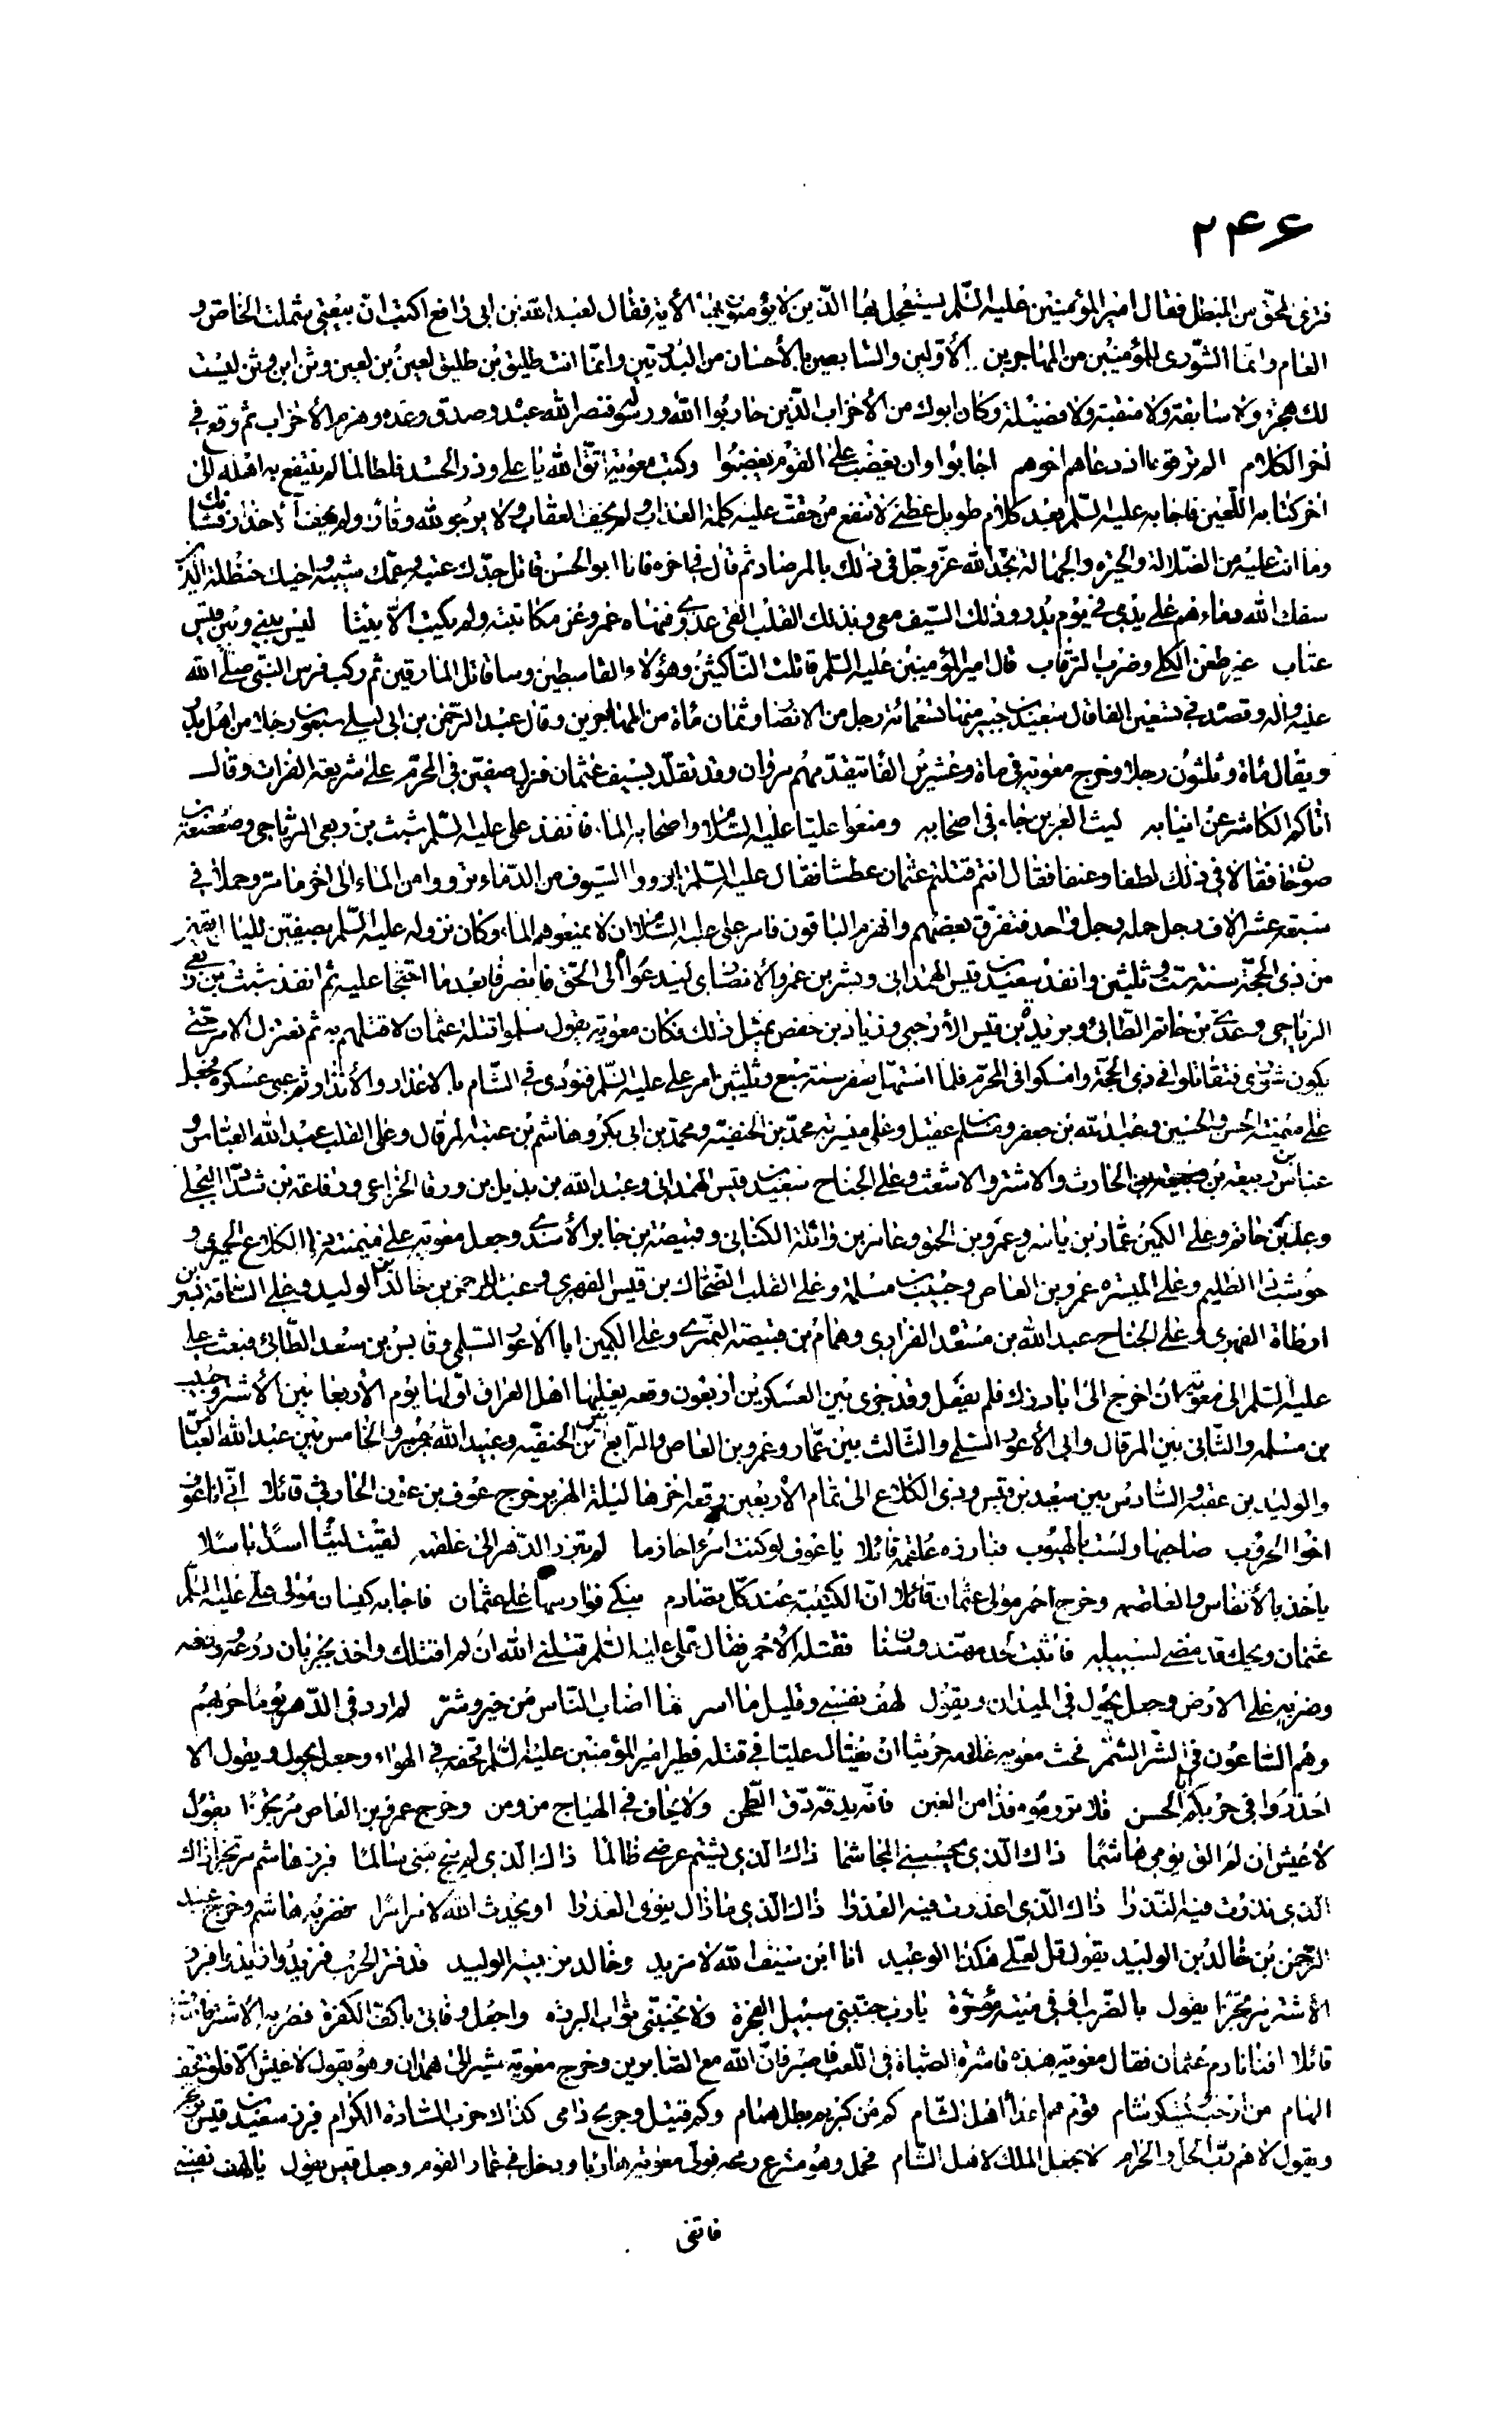 ۲۴۶
فنرى المحق من المبطل فقال امير المؤمنين عليه السلم يستعجل بها الذين لا يؤمنون بها الأية فقال لعبد الله بن ابى رافع اكتب ان بيعتى شملت الخاص و
العام وانما الشورى للمؤمنين من المهاجرين الأولين والسابقين بالأحسان من البدريين وانما انت طليق بن طليق لعين بن لعين وثن ابن وثن ليست
لك هجرة ولا سابقة ولا منقبة ولا فضيلة وكان ابوك من الأحزاب الذين حاربوا الله ورسوله فنصر الله عبده وصدق وعده وهزم الأحزاب ثم وقع فى
اخر الكلام الم تر قومى اذ دعاهم اخوهم اجابوا وان يغضب على القوم يغضبوا وكتب معوية اتق الله يا على وذر الحسد فلطالما لم ينتفع به اهله الى
اخر كتابه اللعين فاجابه عليه السلم بعد كلام طويل عظتى لا تنفع من حقت عليه كلمة العذاب ولم يخف العقاب ولا يرجو لله وقارا ولم يخف له حذارا فشانك
وما انت عليه من الضلالة والحيرة والجهالة تجد الله عز وجل فى ذلك بالمرصاد ثم قال فى اخره فانا ابو الحسن قاتل جدك عتبة وعمك شيبة واخيك حنظلة الذين
سفك الله دماءهم على يدى فى يوم بدر وذلك السيف معى وبذلك القلب القى عدوى فنهاه عمرو عن مكاتبته ولم يكتب الا بيتا ليس بينى وبين قيس
عتاب غير طعن الكلى وضرب الرقاب قال امير المؤمنين عليه السلم قاتلت الناكثين وهؤلاء القاسطين وساقاتل المارقين ثم ركب فرس النبى صلى الله
عليه واله وقصده فى تسعين الفا قال سعيد بن جبير منها تسعمائة رجل من الانصار وثمان مأة من المهاجرين وقال عبد الرحمن بن ابى ليلى سبعون رجلا من اهل بدر
ويقال مأة وثلثون رجلا وخرج معوية فى مأة وعشرين الفا يتقدمهم مروان وقد تقلد بسيف عثمان فنزل صفين فى المحرم على شريعة الفرات وقال
اتاكم الكاشر عن انيابه ليث العرين جاء فى اصحابه ومنعوا عليا عليه السلام واصحابه الماء فانفذ على عليه السلم شبث بن ربعى الرياحى وصعصعة بن
صوحان فقالا فى ذلك لطفا وعنفا فقال انتم قتلتم عثمان عطشا فقال عليه السلم ارووا السيوف من الدماء ترووا من الماء الى اخر ما مر وحملا فى
سبعة عشر الاف رجل حملة رجل واحد فتفرق بعضهم وانهزم الباقون فامر على عليه السلام ان لا يمنعوهم الماء وكان نزوله عليه السلم بصفين لليال بقين
من ذى الحجة سنة ست وثلثين وانفذ سعيد بن قيس الهمدانى وبشر بن عمرو الانصارى ليدعواه الى الحق فانصرفا بعد ما احتجا عليه ثم انفذ شبث بن ربعى
الرياحى وعدى بن حاتم الطائى ويزيد بن قيس الأرحبى وزياد بن خصفة بمثل ذلك فكان معوية يقول سلموا قتلة عثمان لاقتلهم به ثم نعتزل الامر حتى
يكون شورى فتقاتلوا فى ذى الحجة وامسكوا فى المحرم فلما استهل صفر سنة سبع وثلثين امر على عليه السلم فنودى فى الشام بالاعذار والأنذار ثم عبى عسكره فجعل
على ميمنته الحسن والحسين وعبد الله بن جعفر ومسلم بن عقيل وعلى ميسرته محمد بن الحنفية ومحمد بن ابى بكر وهاشم بن عتبة المرقال وعلى القلب عبد الله العباس و
عباس بن ربيعة بن الحارث والاشتر والاشعث وعلى الجناح سعيد بن قيس الهمدانى وعبد الله بن بديل بن ورقا الخزاعى ورفاعة بن شداد البجلى
وعدى بن حاتم وعلى الكمين عمار بن ياسر وعمرو بن الحمق وعامر بن واثلة الكنانى وقبيصة بن جابر الأسدى وجعل معوية على ميمنته ذا الكلاع الحميرى و
حوشب ذا الظليم وعلى الميسرة عمرو بن العاص وحبيب بن مسلمة وعلى القلب الضحاك بن قيس الفهرى وعبد الرحمن بن خالد بن الوليد وعلى الساقة بسر بن
ارطاة الفهرى وعلى الجناح عبد الله بن مسعدة الفزارى وهمام بن قبيصة النمرى وعلى الكمين ابا الاعور السلمى وقابس بن سعد الطائى فبعث على
عليه السلم الى معوية ان اخرج الى ابارزك فلم يفعل وقد جرى بين العسكرين اربعون وقعة يغلبها اهل العراق اولها يوم الأربعا بين الأشتر وحبيب
بن مسلمة والثانى بين المرقال وابى الأعور السلمى والثالث بين عمار وعمرو بن العاص والرابع بين ابن الحنفية وعبيد الله بن عمر والخامس بين عبد الله العباس
والوليد بن عقبة والسادس بين سعيد بن قيس وذى الكلاع الى تمام الأربعين وقعة اخرها ليلة الهرير خرج عوف بن عون الحارثى قائلا انى انا عوف
اخوا الحروب صاحبها ولست بالهيوب فبارزه علقمة قائلا يا عوف لو كنت امرء حازما لم تبرز الدهر الى علقمه لقيت ليثا اسدا باسلا
ياخذ بالأنفاس والغلصمه وخرج احمر مولى عثمان قائلا ان الكتيبة عند كل تصادم تبكى فوارسها على عثمان فاجابه كيسان مولى على عليه السلم
عثمان ويحك قد مضى لسبيله فاثبت لحد مهند وسنان فقتله الاحمر فقال على عليه السلم قتلنى الله ان لم اقتلك واخذ بجربان درعه ورفعه
وضربه على الارض وجعل يجول فى الميدان ويقول لهف نفسى وقليل ما اسر ما اصاب الناس من خير وشر لم ارد فى الدهر يوما حربهم
وهم الساعون فى الشر الشمر فحث معوية غلامه حريثا ان يغتال عليا فى قتله فطير امير المؤمنين عليه السلم قحفه فى الهواء وجعل يجول ويقول الا
احذروا فى حربكم ابا الحسن فلا تروموه فذا من الغبن فانه يدقه دق الطحن ولا يخاف فى الهياج من ومن وخرج عمرو بن العاص مرتجزا يقول
لا عيش ان لم الق يومى هاشما ذاك الذى جشمنى المجاشما ذاك الذى يشتم عرضى ظالما ذاك الذى ان ينج منى سالما فبرز هاشم مرتجزا ذاك
الذى نذرت فيه النذرا ذاك الذى اعذرت فيه العذرا ذاك الذى ما زال ينوى الغدرا او يحدث الله لامر امرا فضربه هاشم وخرج عبد
الرحمن بن خالد بن الوليد يقول قل لعلى هكذا الوعيد انا ابن سيف الله لا مزيد وخالد من بيته الوليد قد فتر الحرب فزيدوا زيدوا فبرز
الأشتر مرتجزا يقول بالضرب اوفى ميتة مؤخرة يا رب جنبنى سبيل الفجرة ولا تخيبنى ثواب البررة واجعل وفاتى باكف الكفرة فضربه الأشتر فانصرف
قائلا افنانا دم عثمان فقال معوية هذه قاشرة الصباة فى اللعب فاصبر فان الله مع الصابرين وخرج معوية يشير الى همدان وهو يقول لا عيش الا فلق قحف
الهام من ارحب وشكر شبام قوم هم اعداء اهل الشام كم من كريم بطل همام وكم قتيل وجريح دامى كذاك حرب السادة الكرام فبرز سعيد بن قيس يرتجز
ويقول لا هم رب الحل والحرام لا تجعل الملك لاهل الشام فحمل وهو مشرع رمحه فولى معوية هاربا ودخل فى غمار القوم وجعل قيس يقول يا لهف نفسى
فاتنى